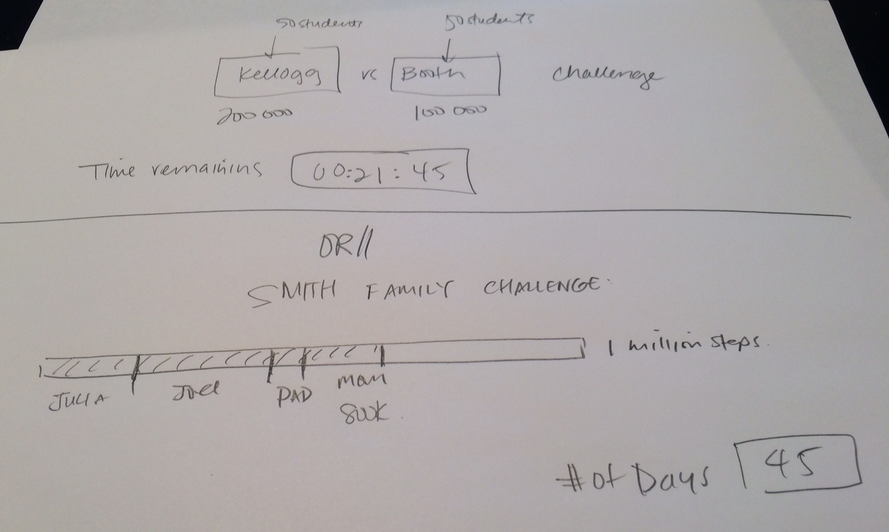 50 students 50 students
Kellogg vs Booth challenge
200 000 100 000
Time remaining 00:21:45
OR//
SMITH FAMILY CHALLENGE.
1 million steps.
JULIA Joel DAD mom
800K.
# of Days 45